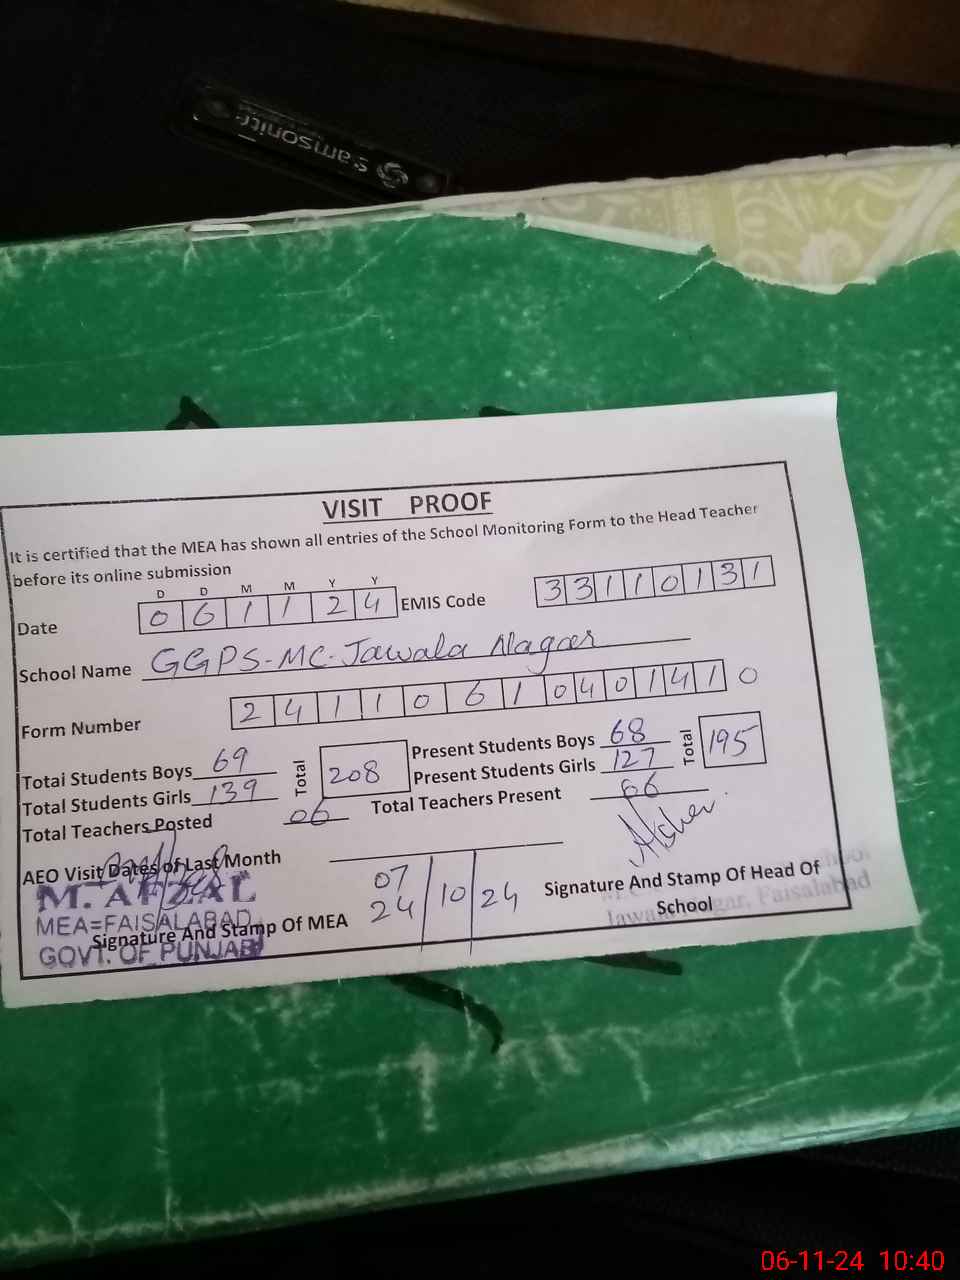 Samsonite
VISIT PROOF
It is certified that the MEA has shown all entries of the School Monitoring Form to the Head Teacher
before its online submission
D D M M Y Y
Date 0 6 1 1 2 4 EMIS Code 3 3 1 1 0 1 3 1
School Name GGPS-MC-Jawala Nagar
Form Number 2 4 1 1 0 6 1 0 4 0 1 4 1 0
Total Students Boys 69 Total 208 Present Students Boys 68 Total 195
Total Students Girls 139 Present Students Girls 127
Total Teachers Posted 06 Total Teachers Present 06
AEO Visit Dates of Last Month 07 24 10 24
M. AFZAL
MEA=FAISALABAD
GOVT. OF PUNJAB
Signature And Stamp Of MEA
Signature And Stamp Of Head Of
School
Nagar, Faisalabad
06-11-24 10:40